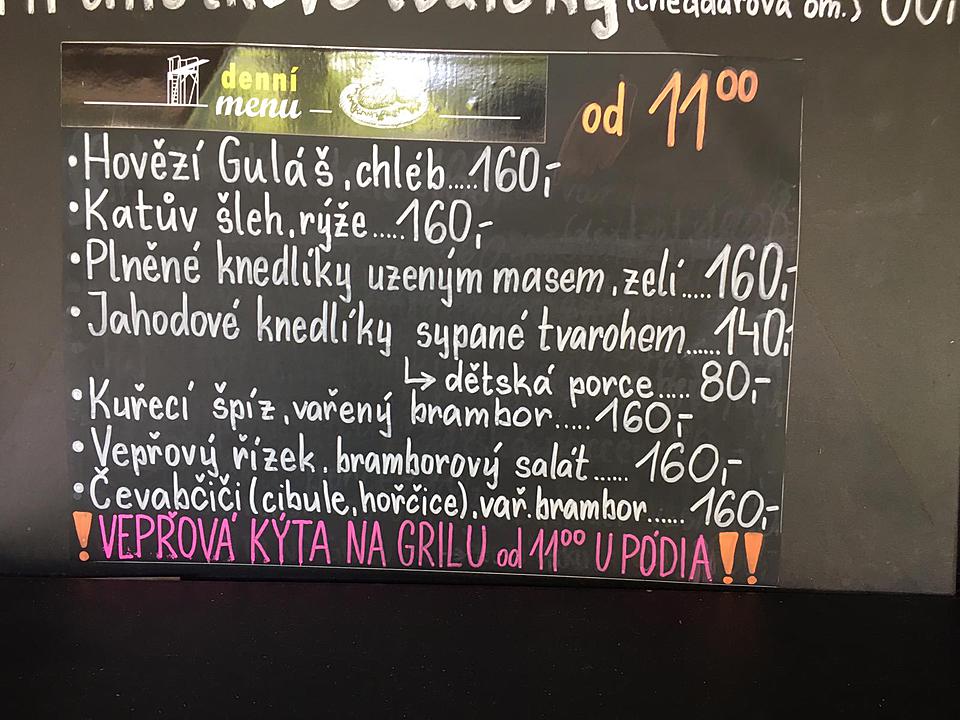 (cheddarová om.)
denní
menu
od 11⁰⁰
•Hovězí Guláš, chléb.....160,-
•Katův šleh, rýže.....160,-
•Plněné knedlíky uzeným masem, zelí.....160,-
•Jahodové knedlíky sypané tvarohem......140,
↳ dětská porce..... 80,-
•Kuřecí špíz, vařený brambor.....160,-
•Vepřový řízek, bramborový salát......160,-
•Čevabčiči (cibule, hořčice), vař. brambor......160,-
!VEPŘOVÁ KÝTA NA GRILU od 11⁰⁰ U PÓDIA!!